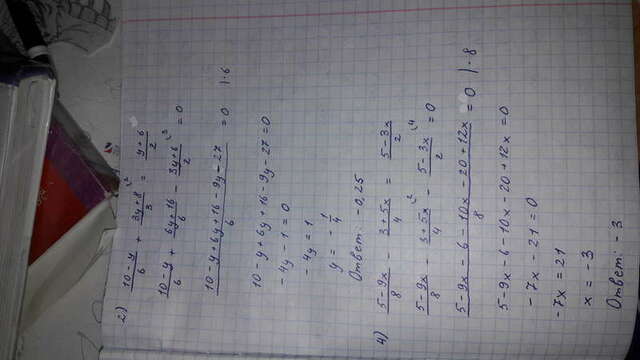 2) (10-y)/6 + (3y+8)/3 \2 = (y+6)/2
(10-y)/6 + (6y+16)/6 - (3y+6)/2 \3 = 0
(10-y+6y+16-9y-27)/6 = 0 |·6
10-y+6y+16-9y-27=0
-4y-1=0
-4y=1
y = -1/4
Ответ: -0,25
4) (5-9x)/8 - (3+5x)/4 = (5-3x)/2
(5-9x)/8 - (3+5x)/4 \2 - (5-3x)/2 \4 = 0
(5-9x-6-10x-20+12x)/8 = 0 |·8
5-9x-6-10x-20+12x=0
-7x-21=0
-7x=21
x=-3
Ответ: -3